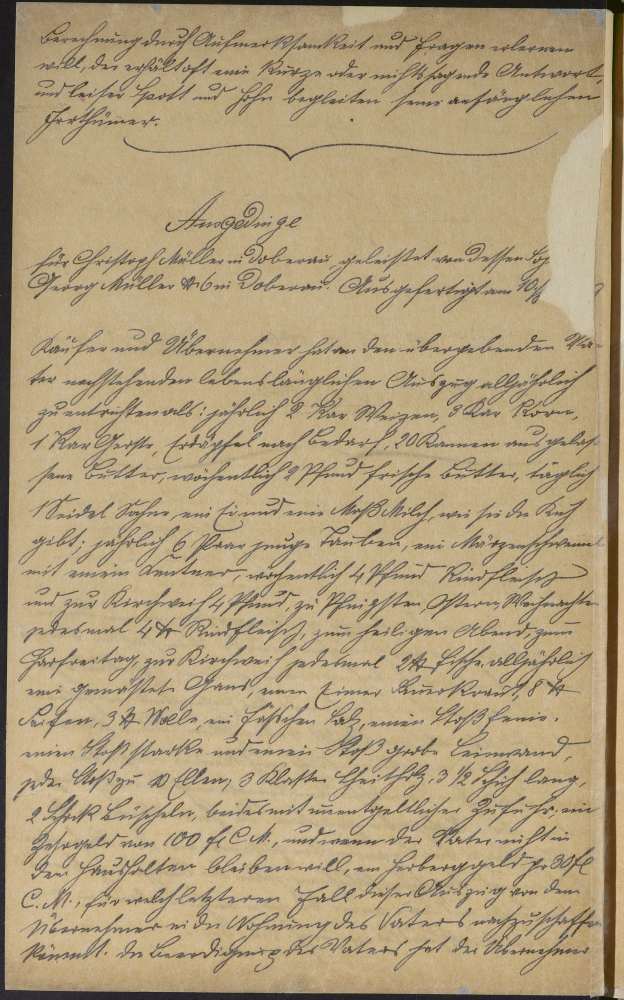 Berechnung durch Aufmerksamkeit und Fragen erlernen
will, der erhält oft eine kurze oder nichtssagende Antwort,
und leiser Spott und Hohn begleiten seine anfänglichen
Irrthümer.
Ausgedinge
für Christoph Müller in Doberau geleistet von dessen
Georg Müller № 6 in Doberau. Ausgefertigt am
Käufer und Übernehmer hat an den übergebenden Va-
ter nachstehenden lebenslänglichen Auszug alljährlich
zu entrichten als: jährlich 2 Kar Weizen, 8 Kar Korn,
1 Kar Gerste, Erdäpfel nach Bedarf, 20 Kannen ausgelas-
sene Butter, wöchentlich 2 Pfund frische Butter, täglich
1 Seidel Sahne, ein Ei und eine Maß Milch, wie sie die Kuh
gibt; jährlich 6 Paar junge Tauben, ein Märzenschwein
mit einem Centner, wochentlich 4 Pfund Rindfleisch
und zur Kirchweih 4 Pfund, zu Pfingsten, Ostern, Weihnachten
jedesmal 4 ℔ Rindfleisch, zum heiligen Abend, zum
Charfreitag, zur Kirchweih jedesmal 2 ℔ Fische, alljährlich
eine gemästete Gans, einen Eimer Sauerkraut, 8 ℔
Seifen, 3 ℔ Wolle, ein Fässchen Salz, einen Stoß feine,
einen Stoß starke und einen Stoß grobe Leinwand,
jeder Stoß zu Ellen, 3 Klafter Scheitholz, 3 1/2 Schuh lang,
2 Schock Büscheln, beides mit unentgeltlicher Zufuhr, ein
Zehrgeld von 100 fl C. M., und wenn der Vater nicht in
den Haushalten bleiben will, ein Herberggeld pr 30 fl
C. M., für welch letzteren Fall dieser Auszug von dem
Übernehmer in die Wohnung des Vaters nachzuschaffen
kömmt. Die Beerdigung des Vaters hat der Übernehmer